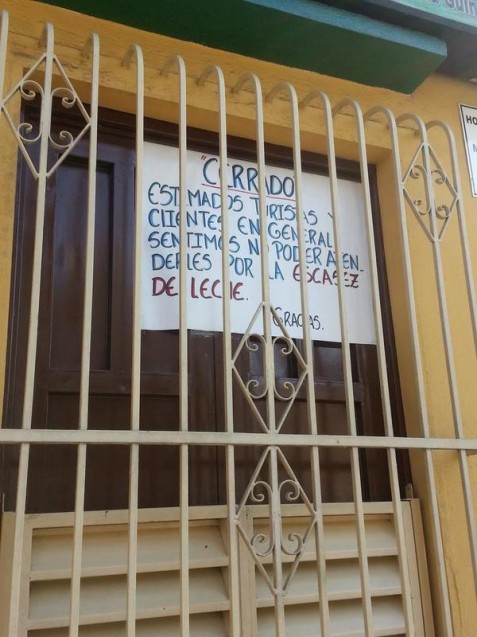 "CERRADO
ESTIMADOS TURISTAS Y
CLIENTES EN GENERAL
SENTIMOS NO PODER ATEN-
DERLES POR LA ESCASEZ
DE LECHE.
GRACIAS.
HO